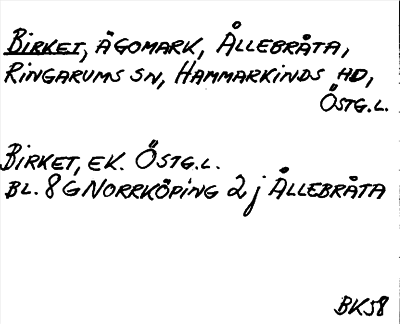 BIRKET, ÄGOMARK, ÅLLEBRÅTA,
RINGARUMS SN, HAMMARKINDS HD,
ÖSTG.L.
BIRKET, EK. ÖSTG.L.
BL. 8 G NORRKÖPING 2 j ÅLLEBRÅTA
BK58